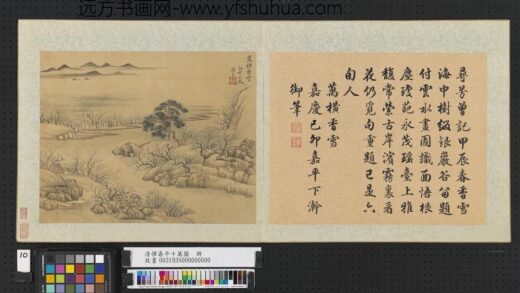 远方书画网-www.yfshuhua.com
尋芳曾記甲辰春香雪
海中樹綴銀巖谷題
付雲水畫圖識面悟根
塵瓊葩永茂瑶臺上雅
馥常縈古岸濱霧裏看
花仍覓句重題已是六
旬人
萬橫香雪
嘉慶己卯嘉平下澣
御筆
萬橫香雪
10
清惲壽平十萬圖 冊
故畫 003193N000000000